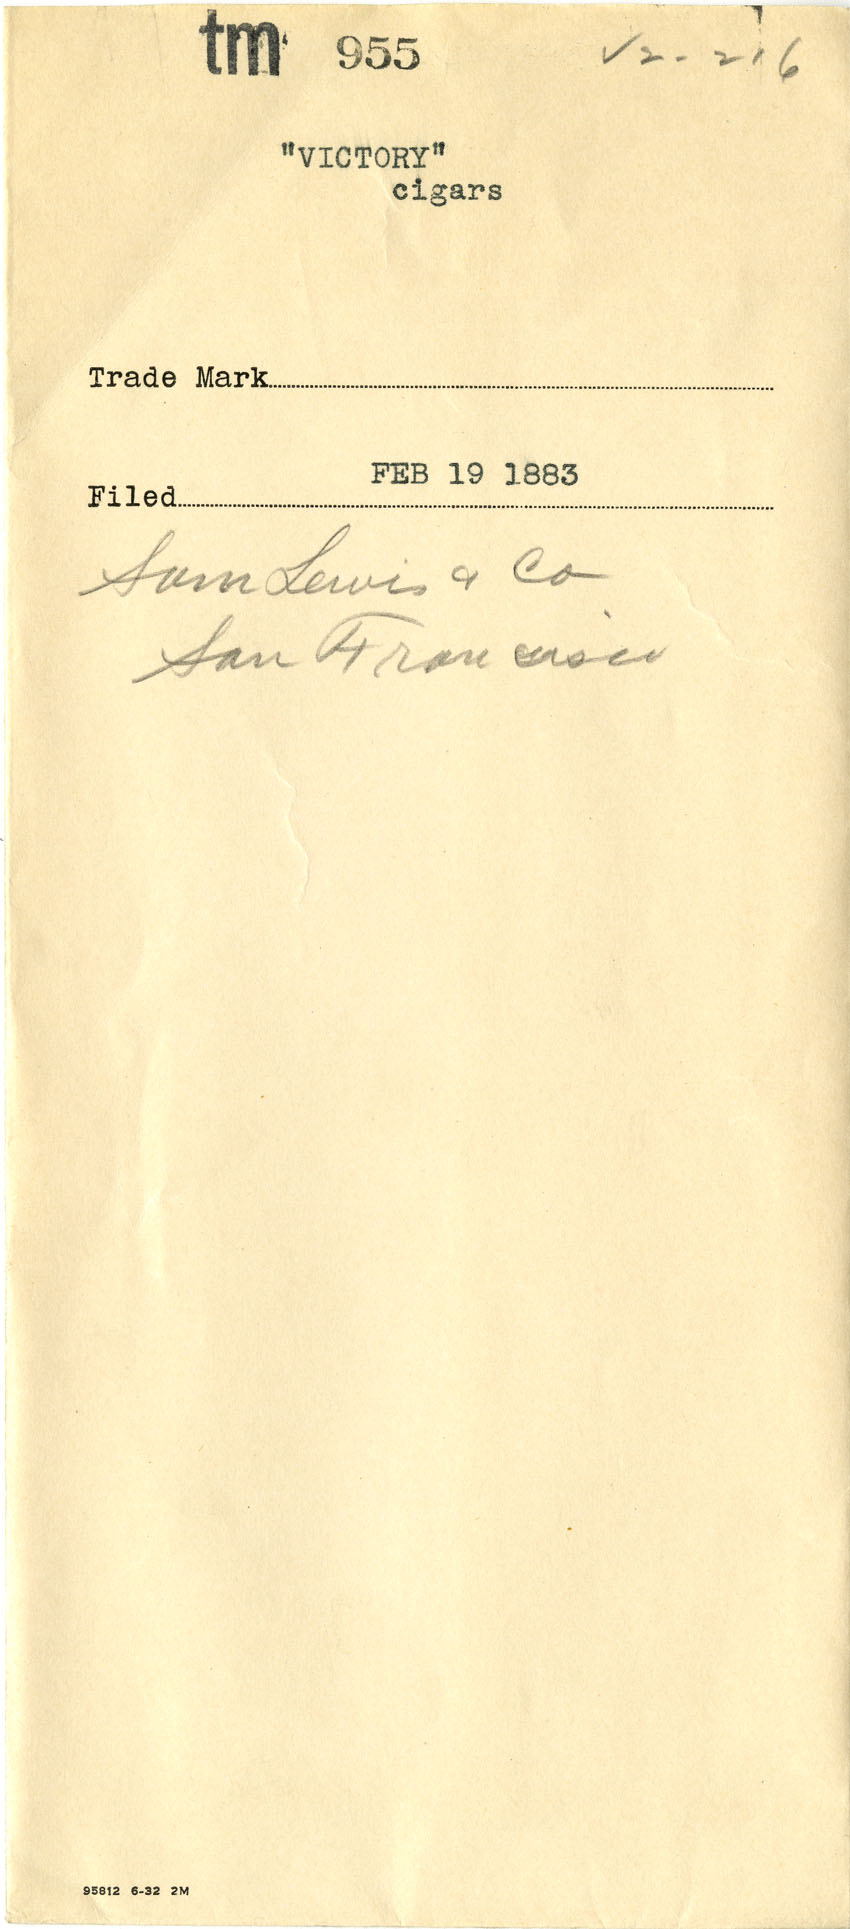 tm 955 √2-216
"VICTORY"
cigars
Trade Mark
FEB 19 1883
Filed
Sam Lewis & Co
San Francisco
95812 6-32 2M